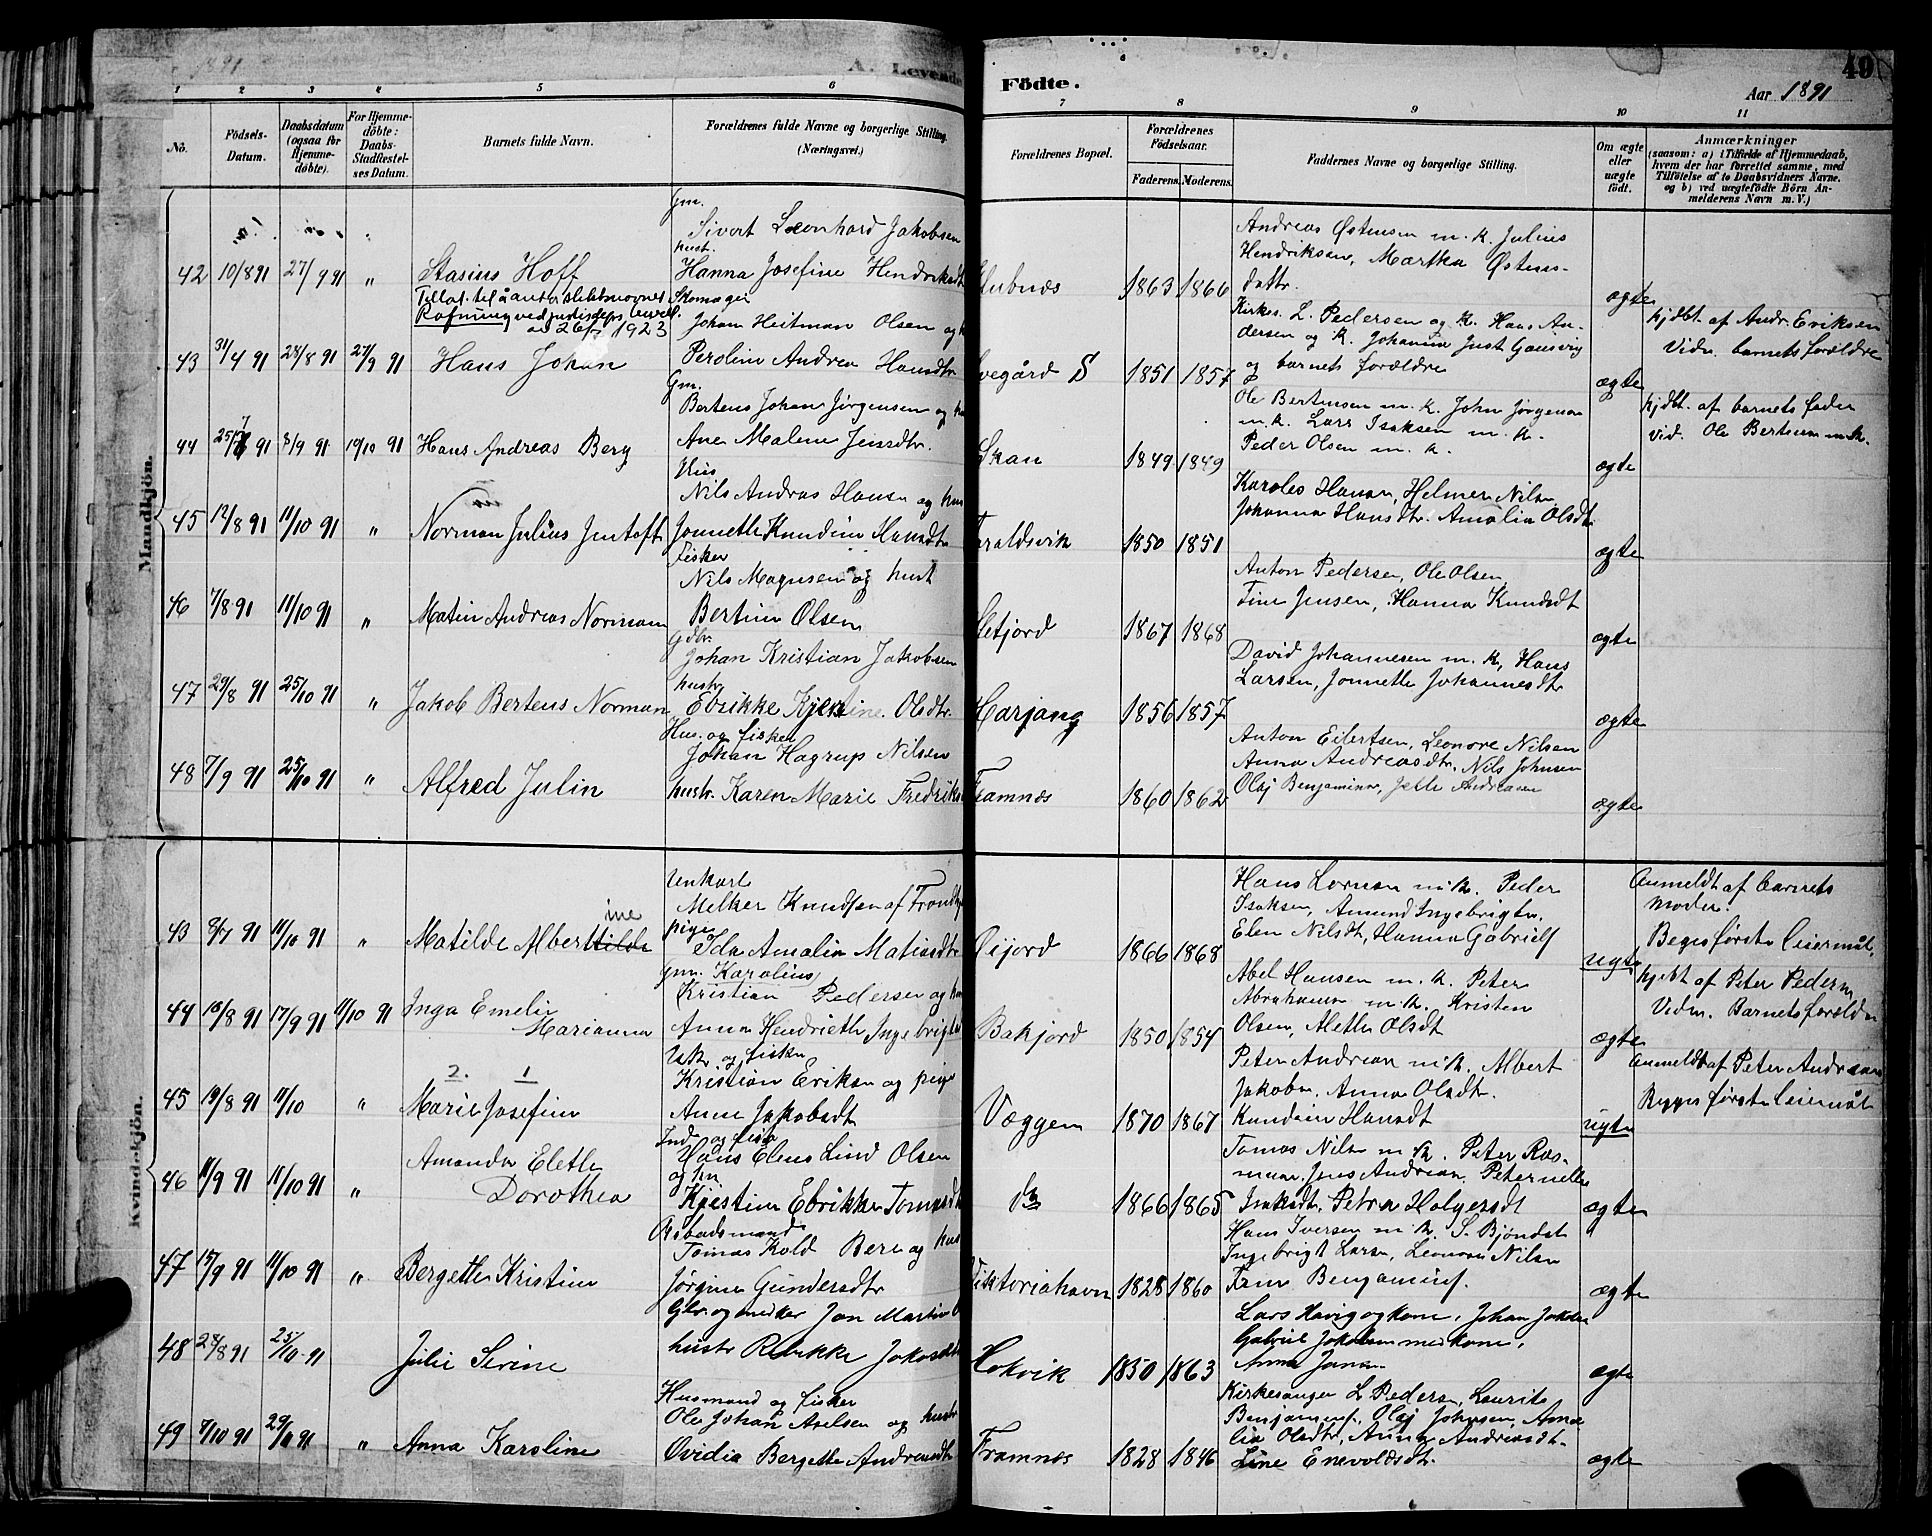 1891
A. Levende
Födte.
49
Aar 1891
1 2 3 4 5 6 7 8 9 10 11
No.
Födsels-Datum.
Daabsdatum (ogsaa for Hjemmedøbte).
For Hjemmedøbte: Daabs-Stadfæstelses Datum.
Barnets fulde Navn.
Forældrenes fulde Navne og borgerlige Stilling. (Næringsvei.)
Forældrenes Bopæl.
Forældrenes Födselsaar.
Faderens. Moderens.
Faddernes Navne og borgerlige Stilling.
Om ægte eller uægte födt.
Anmærkninger
(saasom: a) i Tilfælde af Hjemmedaab, hvem der har forrettet samme, med Tilföielse af to Daabsvidners Navne. og b) ved uægtefödte Börn Anmelderens Navn m. V.)
Mandkjön.
Gm.
Sivert Leonhard Jakobsen
hust.
42 10/8 91 27/9 91 " Stasius Hoff Hanna Josefine Hendriksdt
Rofnung ved justisdeps bevill.
av 26/ 1923
1863 1866
Andreas Østensen m. k. Julius
Hendriksen, Martha Østens-
dattr.
ægte
Skomager
Johan Heitman Olsen og
43 31/4 91 28/8 91 27/9 91 Hans Johan
Perolin Andrea Hansdtr
1851 1857
Kirkes. L. Pedersen og k. Hans An-
dersen og k. Johanna Just Gausvig
og barnets forældre
ægte
hjdbt. af Andr. Eriksen
Vidn. barnets forældre
Gm.
Bertens Johan Jørgensen og
44 25/7 91 8/9 91 19/10 91 Hans Andreas Berg
Ane Malene Jensdtr.
Skan 1849 1849
Ole Bertensen m. k. John Jørgensen
m. k. Lars Isaksen m. k.
Peder Olsen m. k.
ægte
hjdbt. af barnets fader
vid. Ole Bertensen m. k.
Hus
Nils Andreas Hansen og hus
45 12/8 91 11/10 91 " Norman Julius Jentoft
Jonnette Knudine Hansdtr
Taraldsvik 1850 1851
Karoles Hansen, Helmer Nilsen
Johanna Hansdtr. Amalia Olsdt
ægte
fisker
Nils Magnesen og hust
46 7/8 91 11/10 91 " Matin Andreas Normann
Bertine Olsen
1867 1868
Anton Pedersen, Ole Olsen,
Tine Jensen, Hanna Knudsdt
ægte
Gdbr.
Johan Kristian Jakobsen
hustr
47 29/8 91 25/10 91 " Jakob Bertens Norman
Ebrikke Kjerstine Olsdtr.
Harjang 1856 1857
David Johannesen m. k, Hans
Larsen, Jonnette Johannesdtr
ægte
Hus. og fisker
Johan Hagrup Nilsen
48 7/9 91 25/10 91 " Alfred Julin
hustr. Karen Marie Fredriks
Framnæs 1860 1862
Anton Eilertsen, Leonore Nilsen
Anna Andreasdtr. Nils Johnsen
Olaf Benjaminsen, Jette Andreasen
ægte
Kvindekjön.
Unkarl
Melker Knudsen af Trondhj
pige
43 8/7 91 11/10 91 " Matilde Alberttilde ine
Ida Amalia Matiasdtr
1866 1868
Hans Larsen m. k. Peder
Isaksen, Amund Ingebrigtsen.
Elen Nilsdt, Hanna Gabriels
ugte
Anmeldt af barnets
moder.
Begges første leiermål.
Gm. Karolius
Kristian Pedersen og
44 18/8 91 17/9 91 11/10 91 Inga Emelie
Marianna
Anna Hendriette Ingebrigts
Bakjord 1850 1854
Abel Hansen m. k. Peter
Abrahamsen m. k. Kristen
Olsen, Alette Olsdt
ægte
hjdbt af Peter Pedersen
Vidn. Barnets forældre
Ukr. og fisker
Kristian Eriksen og pige
2. 1
45 19/8 91 11/10 " Marie Josefine
Anne Jakobsdt
Væggen 1870 1867
Peter Andreasen m. k. Albert
Jakobsen, Anna Olsdtr.
Knudine Hansdt
ugte
Anmeldt af Peter Andreasen
Begges første leiermål
Ind. og fisk
Hans Elens Lind Olsen
og hu
46 11/9 91 11/10 91 " Amanda Elette
Dorothea
Kjerstine Ebrikke Tomasdt
do 1866 1865
Tomas Nilsen m k. Peter Ras-
mussen, Jens Andreasen, Peternelle
Isaksdtr, Petra Holgersdt
ægte
Arbeidsmand
Tomas Kold Berg og hus
47 15/9 91 11/10 91 " Bergette Kristine
Jørgine Gundersdtr
Viktoriahavn 1828 1860
Hans Iversen m k. S. Bjøndal
Ingebrigt Larsen, Leonore Nilsen
Trine Benjamins.
ægte
Jon Martin
48 28/8 91 25/10 91 Julie Serine
hustr Rebekke Jakobsdt
1850 1863
Lars Havig og kone, Johan Jakobsen
Gabriel Jakobsen med kone,
Anna Jansen
ægte
Husmand og fisker
Ole Johan Axelsen og hustr
49 7/10 91 29/11 91 " Anna Karoline
Ovidia Bergette Andreasdt
Framnæs 1828 1846
Kirkesanger L Pedersen, Laurits
Benjamins., Olaf Johnsen, Ama-
lia Olsdtr, Anna Andreasdt.
Line Enevoldsdt.
ægte